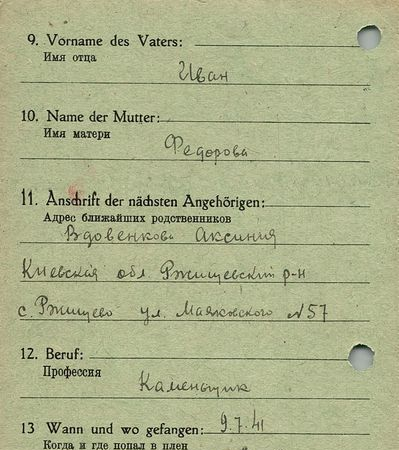 9. Vorname des Vaters:
Имя отца
Иван
10. Name der Mutter:
Имя матери
Федорова
11. Anschrift der nächsten Angehörigen:
Адрес ближайших родственников
Вдовенкова Аксиния
Киевская обл. Ржищевский р-н
с. Ржищево ул. Маяковского №57
12. Beruf:
Профессия
Каменьщик
13 Wann und wo gefangen: 9.7.41
Когда и где попал в плен